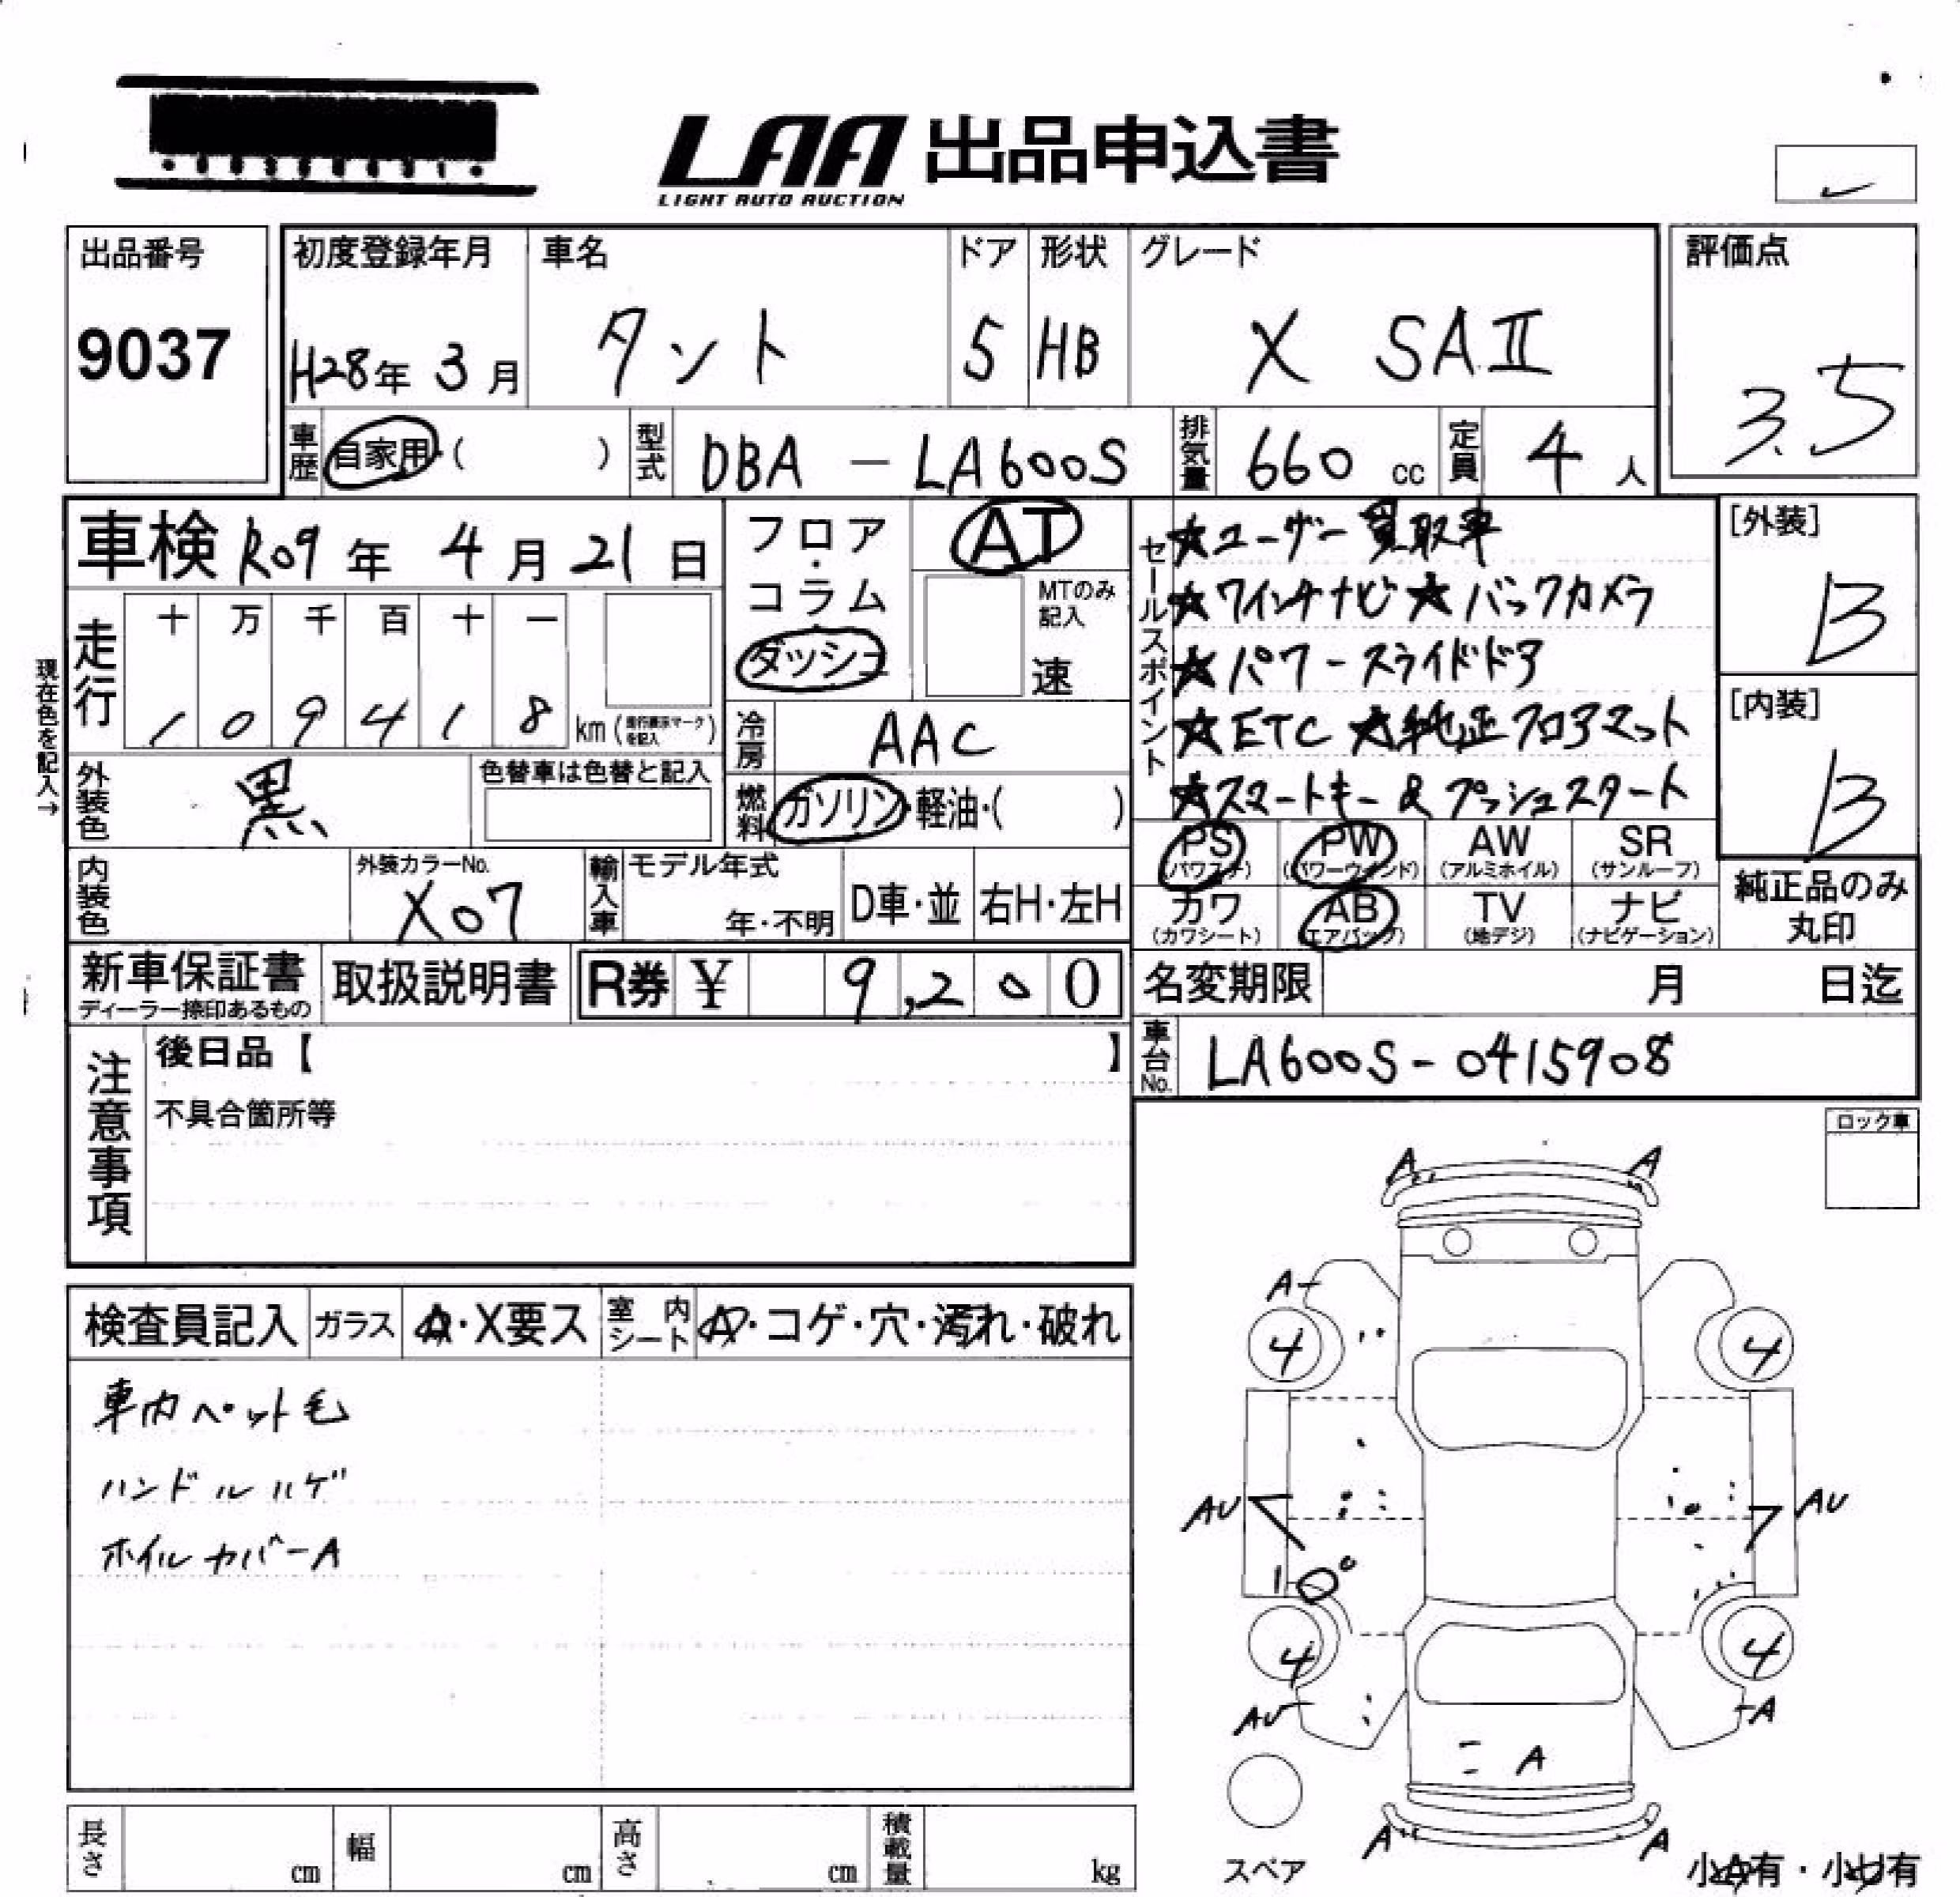 LAA 出品申込書
LIGHT AUTO AUCTION
出品番号
9037
初度登録年月
H28年 3月
車名
タント
ドア
5
形状
HB
グレード
X SAⅡ
評価点
3.5
車歴 自家用・( )
型式 DBA - LA600S
排気量 660 cc
定員 4 人
車検 R09年 4月 21日
フロア・コラム・ダッシュ
AT
MTのみ記入
速
走行
十 万 千 百 十 一
1 0 9 4 1 8 km (走行表示マークを記入)
現在色を記入→
冷房 AAC
外装色 黒
色替車は色替と記入
燃料 ガソリン・軽油・( )
内装色
外装カラーNo.
X07
輸入車 モデル年式
年・不明 D車・並 右H・左H
セールスポイント
★ユーザー買取車
★ワインナビ ★バックカメラ
★パワースライドドア
★ETC ★純正フロアマット
★スマートキー & プッシュスタート
[外装]
B
[内装]
B
PS (パワステ) PW (パワーウインド) AW (アルミホイル) SR (サンルーフ)
カワ (カワシート) AB (エアバッグ) TV (地デジ) ナビ (ナビゲーション)
純正品のみ
丸印
新車保証書
ディーラー捺印あるもの
取扱説明書
R券 ¥ 9,200
名変期限 月 日迄
車台No. LA600S-0415908
注意事項
後日品【 】
不具合箇所等
ロック車
検査員記入 ガラス A・X要ス 室内シート A・コゲ・穴・汚れ・破れ
車内ペット毛
ハンドルハゲ
ホイルカバーA
A A
A
4 4
AU AU
4 4
AU A
A
A A
スペア
小A有・小U有
長さ cm 幅 cm 高さ cm 積載量 kg